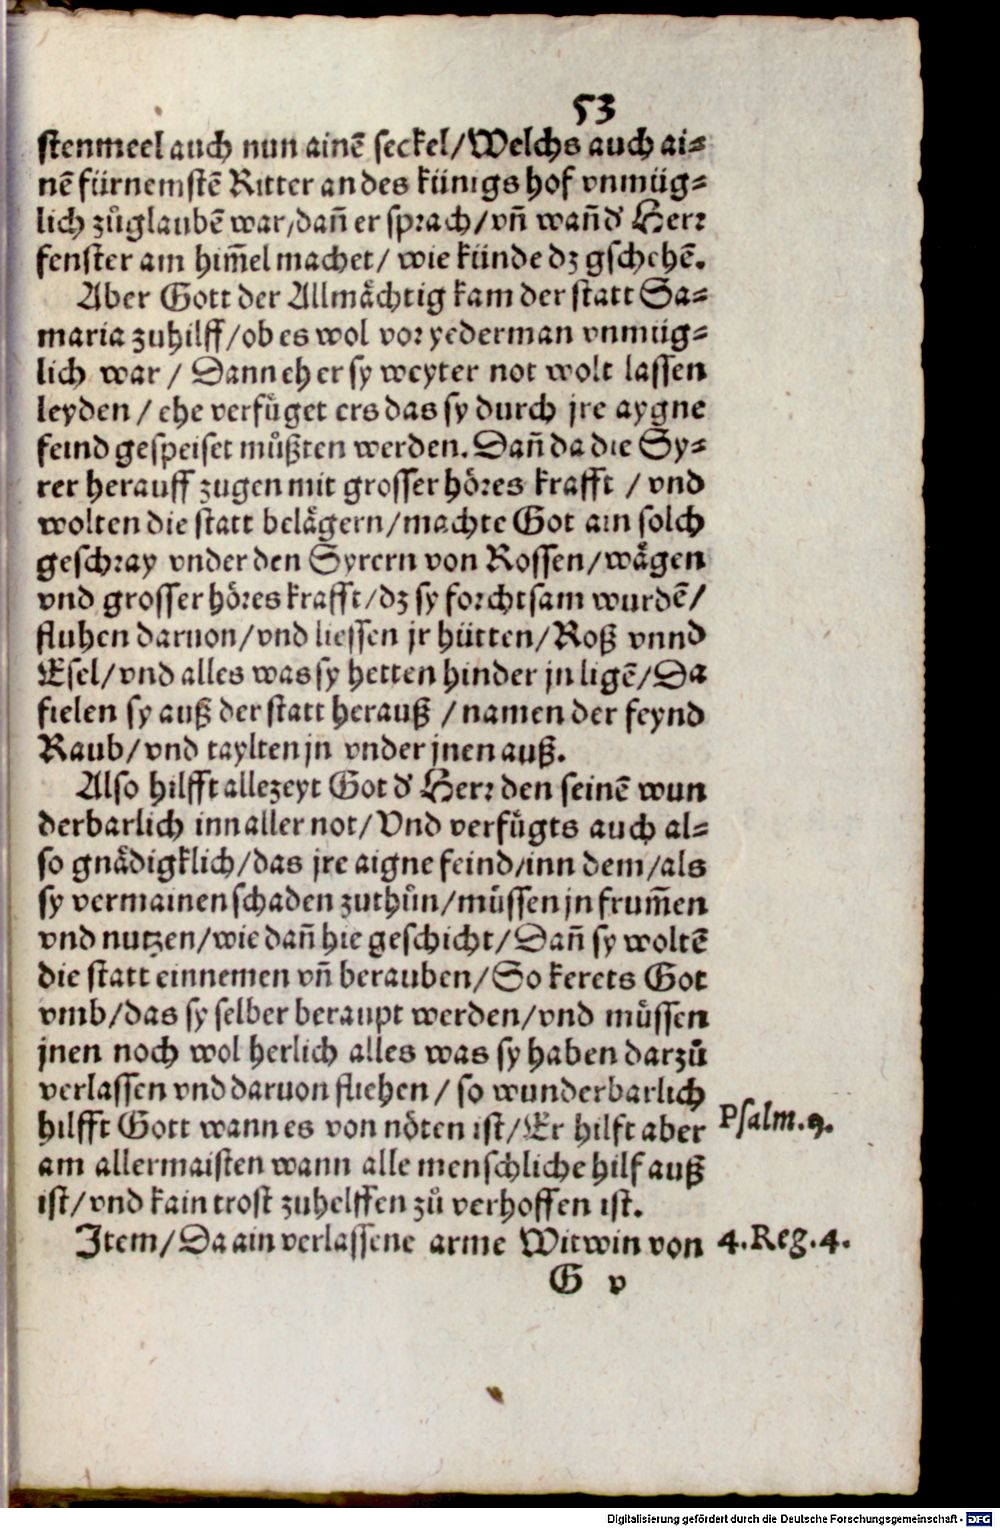 53
stenmeel auch nun ainē seckel/Welchs auch ai⸗
nē fürnemstē Ritter an des künigs hof vnmüg⸗
lich zůglaubē war/dañ er sprach/vñ wañ d' Herr
fenster am him̄el machet/ wie künde dz gschehē.
Aber Gott der Allmåchtig kam der statt Sa⸗
maria zuhilff/ob es wol vor yederman vnmüg⸗
lich war / Dann eh er sy weyter not wolt lassen
leyden / ehe verfůget ers das sy durch jre aygne
feind gespeiset můßten werden. Dañ da die Sy⸗
rer herauff zugen mit grosser hőres krafft / vnd
wolten die statt belågern/machte Got ain solch
geschray vnder den Syrern von Rossen/wågen
vnd grosser hőres krafft/dz sy forchtsam wurdē/
fluhen daruon/vnd liessen jr hütten/Roß vnnd
Esel/vnd alles was sy hetten hinder jn ligē/Da
fielen sy auß der statt herauß /namen der feynd
Raub/vnd taylten jn vnder jnen auß.
Also hilfft allezeyt Got d' Herr den seinē wun
derbarlich inn aller not/Vnd verfůgts auch al⸗
so gnådigklich/das jre aigne feind/inn dem/als
sy vermainen schaden zuthůn/můssen jn frum̄en
vnd nutzen/wie dañ hie geschicht/Dañ sy woltē
die statt einnemen vñ berauben/So kerets Got
vmb/das sy selber beraupt werden/vnd můssen
jnen noch wol herlich alles was sy haben darzů
verlassen vnd daruon fliehen / so wunderbarlich
hilfft Gott wann es von nőten ist/Er hilft aber
Psalm.9.
am allermaisten wann alle menschliche hilf auß
ist/vnd kain trost zuhelffen zů verhoffen ist.
Item/Da ain verlassene arme Witwin von
4.Reg.4.
G v
Digitalisierung gefördert durch die Deutsche Forschungsgemeinschaft - DFG